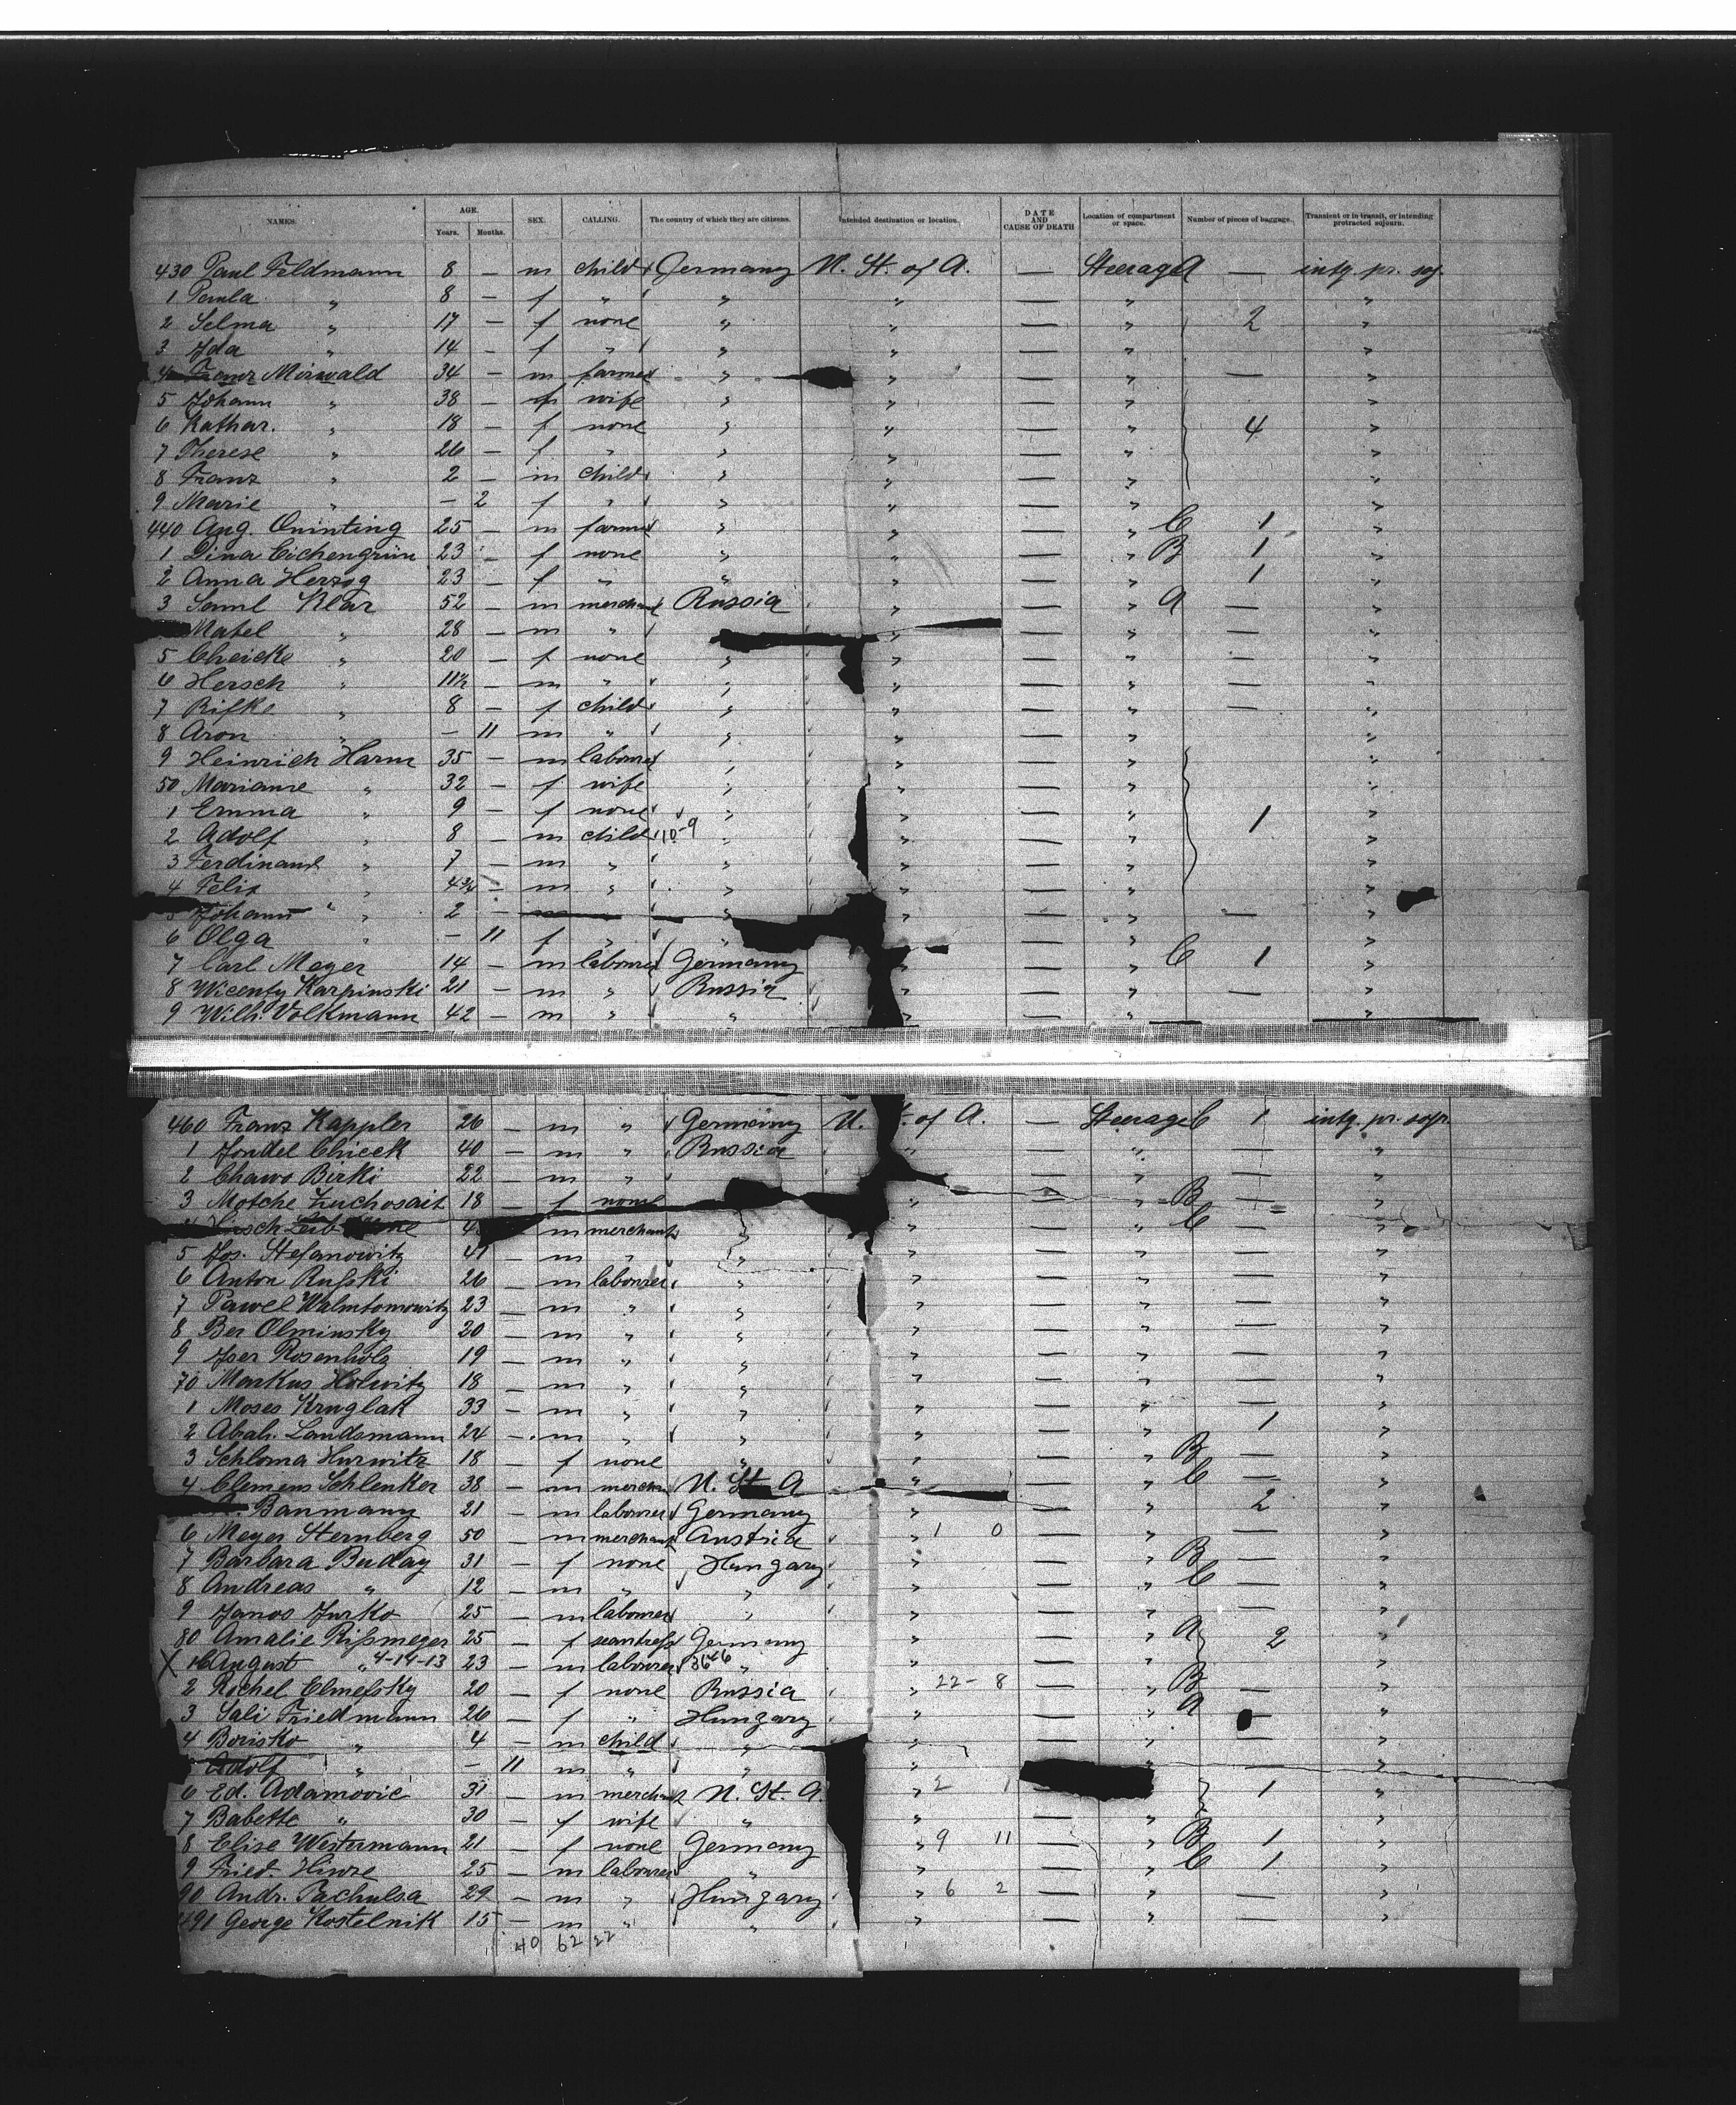 NAMES. AGE. Years. Months. SEX. CALLING. The country of which they are citizens. Intended destination or location. DATE AND CAUSE OF DEATH Location of compartment or space. Number of pieces of baggage. Transient or in transit, or intending protracted sojourn.
430 Paul Feldmann 8 — m child Germany U. St. of A. — Steerage A — intg. pr. soj.
1 Paula " 8 — f " " " — " "
2 Selma " 17 — f none " " — " 2 "
3 Ida " 14 — f " " " — " "
4 Franz Mirwald 34 — m farmer " " — " — "
5 Johann " 38 — f wife " " — " "
6 Kathar. " 18 — f none " " — " 4 "
7 Therese " 26 — f " " " — " "
8 Franz " 2 — m child " " — " "
9 Marie " — 2 f " " " — " "
440 Aug. Quinting 25 — m farmer " " — " C 1 "
1 Dina Eichengrün 23 — f none " " — " B 1 "
2 Anna Herzog 23 — f " " " — " 1 "
3 Saml Klar 52 — m merchant Russia " — " A — "
Matel " 28 — m " " — " — "
5 Cheicke " 20 — f none " " — " — "
6 Hersch " 11½ — m " " " — " — "
7 Rifke " 8 — f child " " — " — "
8 Aron " — 11 m " " " — " "
9 Heinrich Harm 35 — m labourer " " — " "
50 Marianne " 32 — f wife " " — " "
1 Emma " 9 — f none " " — " 1 "
2 Adolf " 8 — m child 10-9 " " — " "
3 Ferdinand " 7 — m " " " — " "
4 Felix " 4¾ — m " " " — " "
5 Johann " 2 — " " — " — "
6 Olga " — 11 f " " " — " "
7 Carl Meyer 14 — m labourer Germany " — " C 1 "
8 Wicenty Karpinski 21 — m " Russia " — " — "
9 Wilh. Volkmann 42 — m " " " — " — "
460 Franz Kappler 26 — m " Germany U. St. of A. — Steerage C 1 intg. pr. soj.
1 Jondel Chicek 40 — m " Russia " — " — "
2 Chawo Birki 22 — m " — " — "
3 Motche 18 — f none " — " B — "
Hirsch Leib m merchant " — " C — "
5 Jos. Stefanowitz 41 — m " " " — " — "
6 Anton Rußki 26 — m labourer " " — " — "
7 Pawel 23 — m " " " — " — "
8 Ber Olminsky 20 — m " " " — " — "
9 Iser Rosenholz 19 — m " " " — " — "
70 Markus Holwitz 18 — m " " " — " — "
1 Moses Kruglak 33 — m " " " — " — "
2 Abrah. Landsmann 24 — m " " " — " 1 "
3 Schloma Hurwitz 18 — f none " " — " B — "
4 Clemens Schlenker 38 — m merchant U. St. A " — " C — "
Banmann 21 — m labourer Germany " — " 2 "
6 Meyer Sternberg 50 — m merchant Austria " 1 0 — " — "
7 Barbara Buday 31 — f none Hungary " — " B — "
8 Andreas " 12 — m " " " — " C — "
9 Janos Jurko 25 — m labourer " " — " — "
80 Amalie Rißmeyer 25 — f seamtreß Germany " — " A 2 "
X 1 August " 4-14-13 23 — m labourer 3646 " " — " "
2 Rochel Elmeßky 20 — f none Russia " 22-8 — " B — "
3 Sali Friedmann 26 — f " Hungary " — " A — "
4 Borisko " 4 — m child " " — " — "
Adolf " — 11 m " " " "
6 Ed. Adamovic 31 — m merchant U. St. A. " 2 1 1 "
7 Babette " 30 — f wife " " — " "
8 Elise Westermann 21 — f none Germany " 9 11 — " B 1 "
9 Fried. Hinze 25 — m labourer " " — " C 1 "
90 Andr. Tachulsa 29 — m " Hungary " 6 2 — " — "
491 George Kostelnik 15 — m " " " — " — "
40 62 22